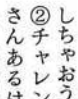 しちゃおう
②チャレン
さんあるけ